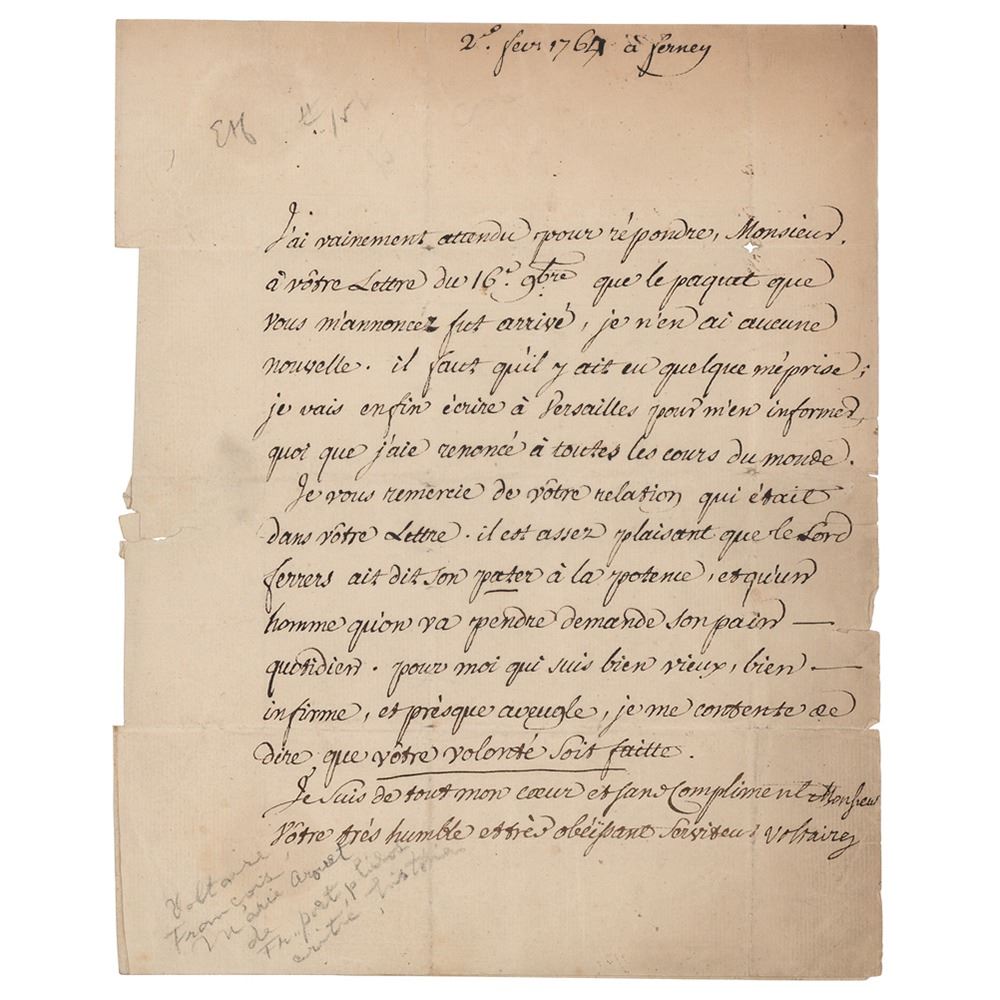 2.e fevr 1764 à ferney
J'ai vainement attendu pour répondre, Monsieur,
à vôtre Lettre du 16.e 9bre que le paquet que
vous m'annoncez fut arrivé, je n'en ai aucune
nouvelle. il faut qu'il y ait eu quelque méprise;
je vais enfin écrire à Versailles pour m'en informer,
quoi que j'aie renoncé à toutes les cours du monde.
Je vous remercie de vôtre relation qui était
dans vôtre Lettre. il est assez plaisant que le Lord
ferrers ait dit son pater à la potence, et qu'un
homme qu'on va pendre demande son pain —
quotidien. pour moi qui suis bien vieux, bien —
infirme, et présque aveugle, je me contente de
dire que vôtre volonté soit faitte.
Je suis de tout mon cœur et sans Compliment Monsieur
Vôtre trés humble et très obéissant serviteur Voltaire
Voltaire,
François
Marie Arouet
de
Fr. poet,
critic, historian